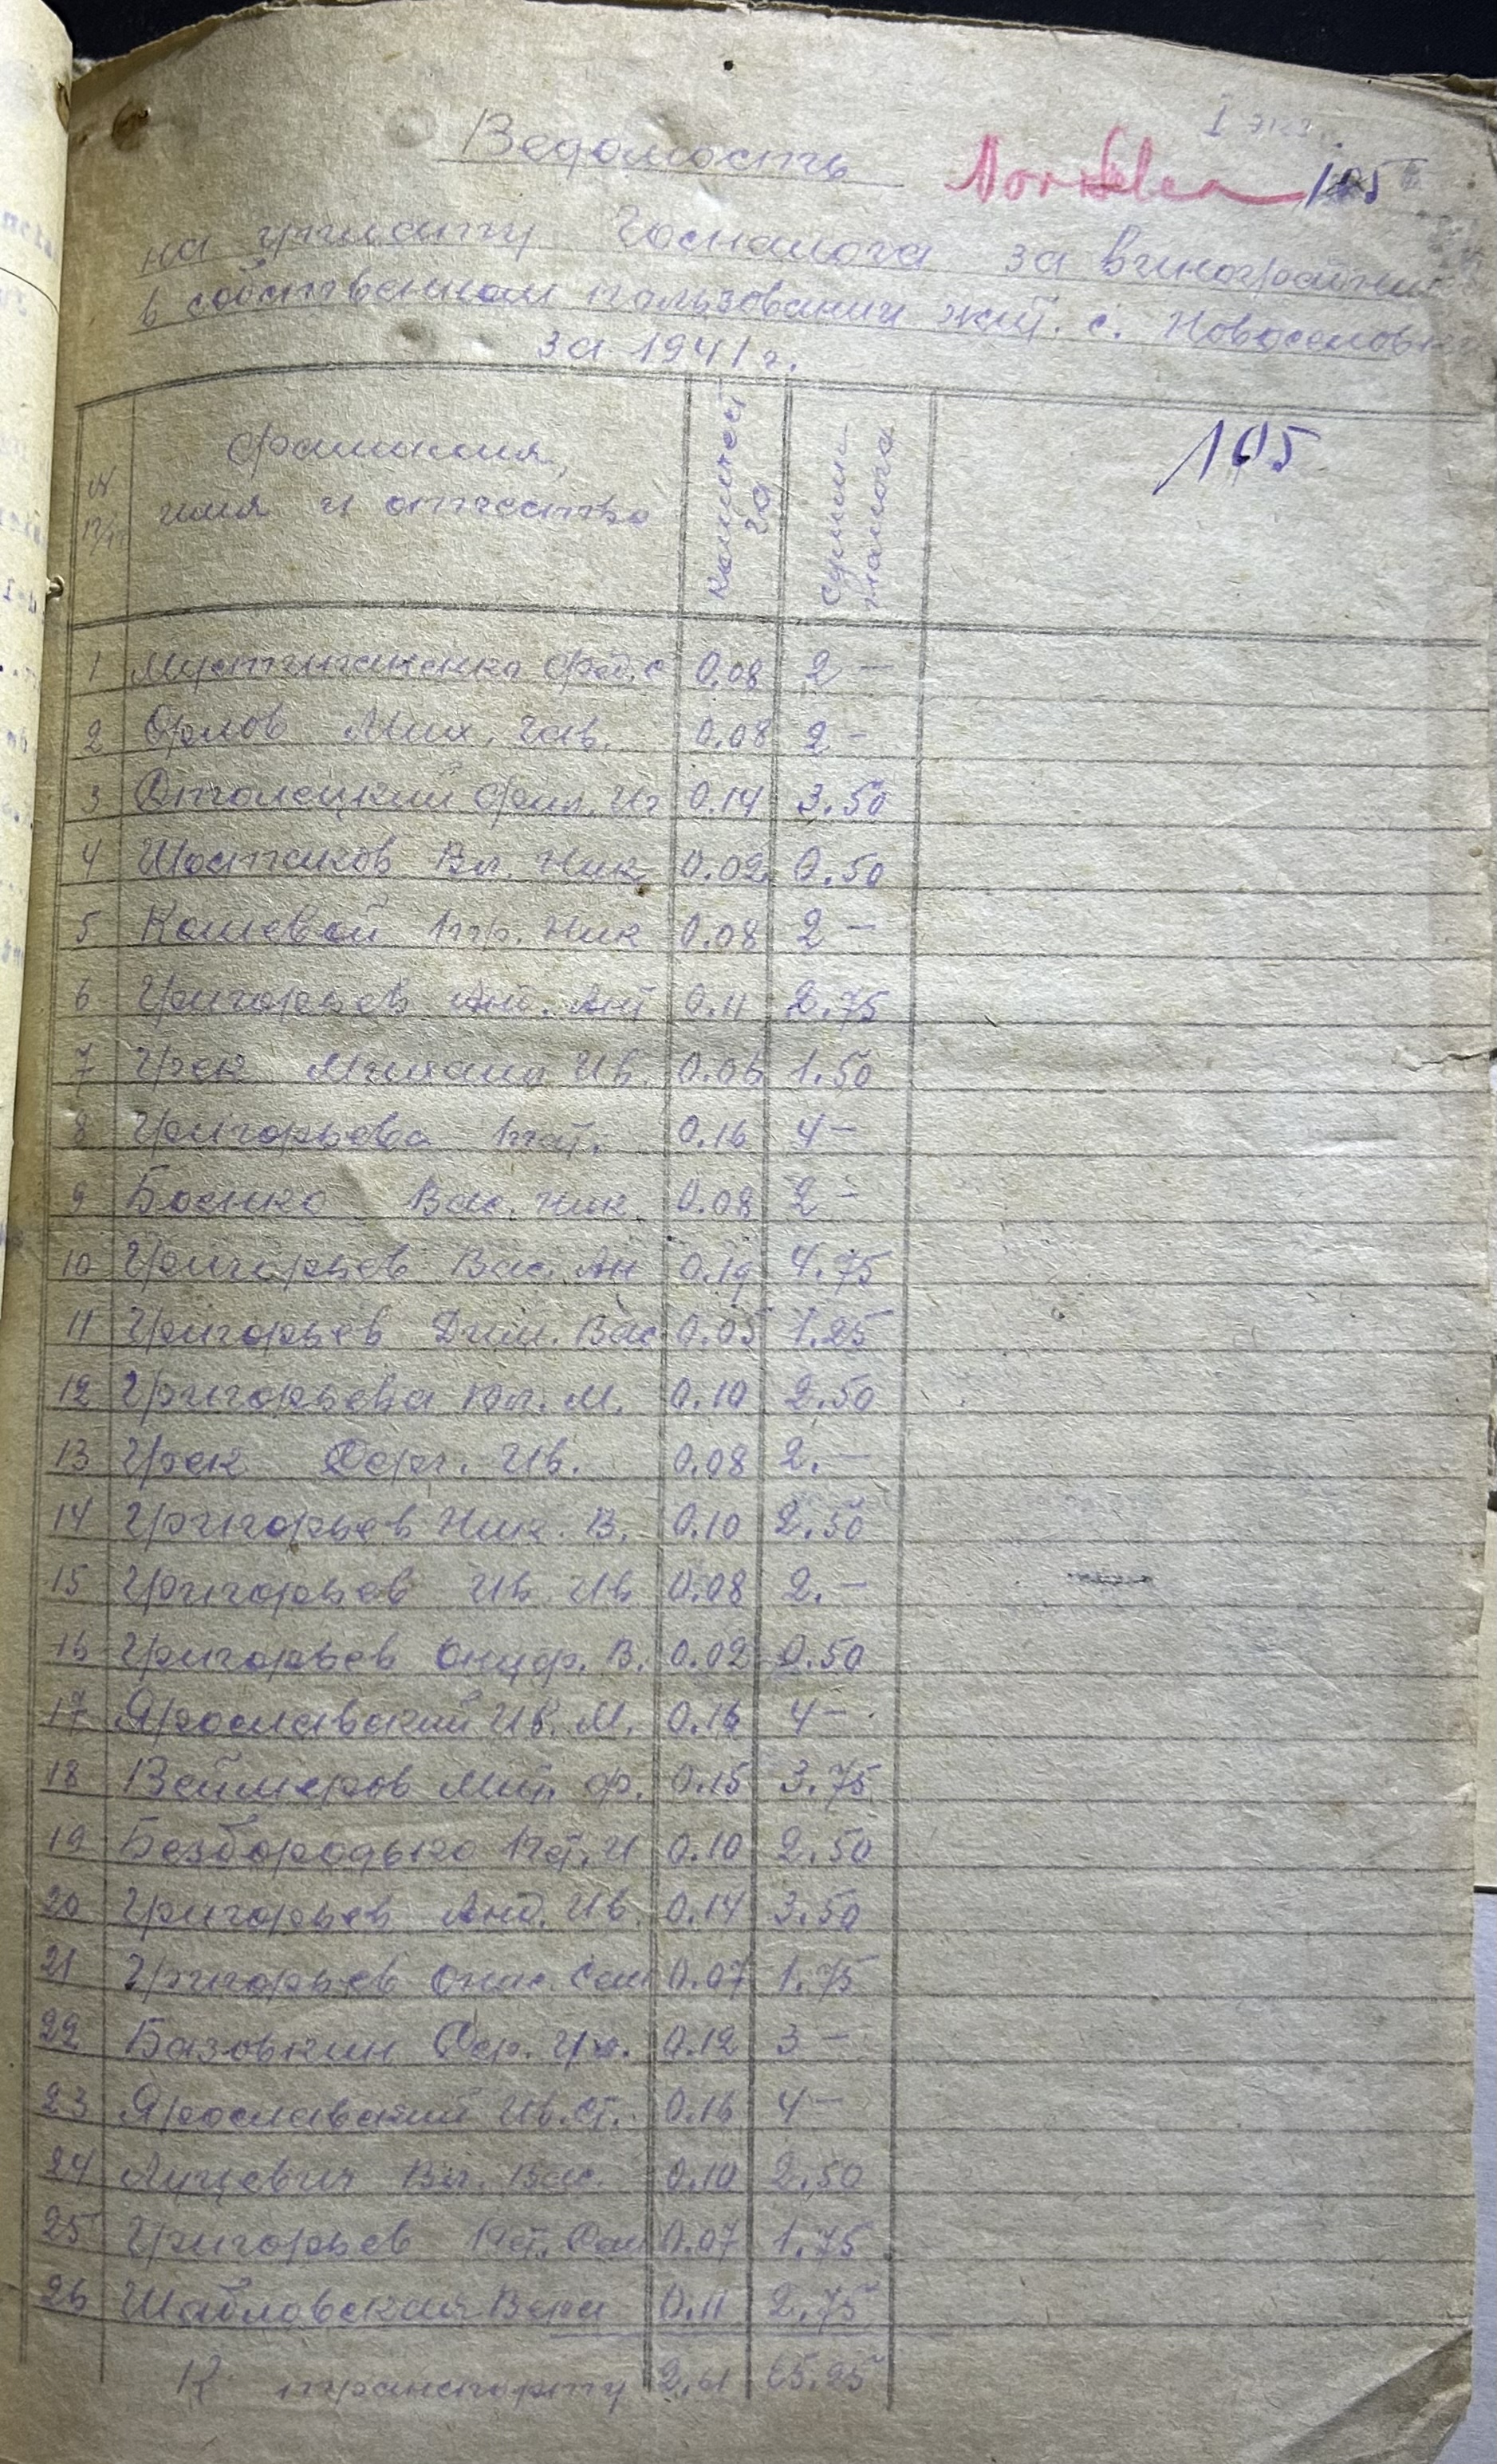 I экз.
Ведомость
105
на уплату Госналога за виноградники
в собственном пользовании жит. с. Новоселовки
за 1941 г.
105
№ п/п
Фамилия, имя и отчество
колич. га
Сумма налога
1 Фед. С 0.08 2 –
2 Орлов Мих. Гав. 0.08 2 –
3 Фил. Иг 0.14 3.50
4 Шостаков Вл. Ник. 0.02 0.50
5 Кошевой Пр. Ник 0.08 2 –
6 Григорьев Анд. Ант 0.11 2.75
7 Грек Михаил Ив. 0.06 1.50
8 Григорьева Нат. 0.16 4 –
9 Боенко Вас. Ник. 0.08 2 –
10 Григорьев Вас. Ан 0.19 4.75
11 Григорьев Дим. Вас 0.05 1.25
12 Григорьева Юл. М. 0.10 2.50
13 Грек Серг. Ив. 0.08 2. –
14 Григорьев Ник. В. 0.10 2.50
15 Григорьев Ив. Ив 0.08 2. –
16 Григорьев Онуфр. В. 0.02 0.50
17 Ярославский Ив. М. 0.16 4 –
18 Веймеров Мит. Ф. 0.15 3.75
19 Безбородько Пет. И 0.10 2.50
20 Григорьев Анд. Ив. 0.14 3.50
21 Григорьев Онис. Сем 0.07 1.75
22 Базовкин Сер. Гр. 0.12 3 –
23 Ярославский Ив. Ст. 0.16 4 –
24 Луцевич Вл. Вас. 0.10 2.50
25 Григорьев Пет. Сем 0.07 1.75
26 Шабловская Вера 0.11 2.75
К транспорту 2.61 65.25